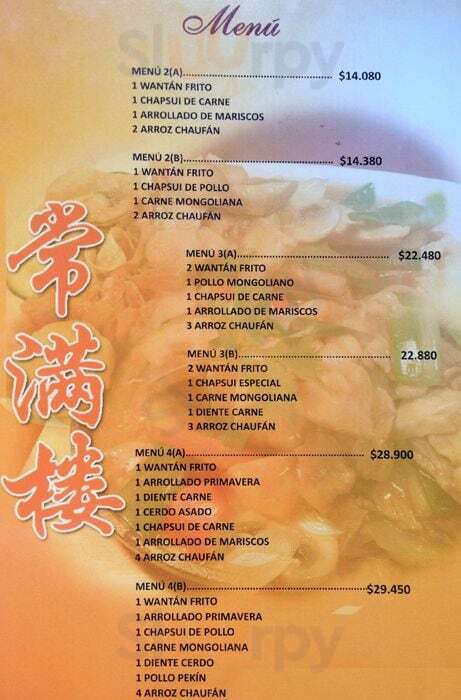 Menú
MENÚ 2(A)........................................ $14.080
1 WANTÁN FRITO
1 CHAPSUI DE CARNE
1 ARROLLADO DE MARISCOS
2 ARROZ CHAUFÁN
MENÚ 2(B)........................................ $14.380
1 WANTÁN FRITO
1 CHAPSUI DE POLLO
1 CARNE MONGOLIANA
2 ARROZ CHAUFÁN
MENÚ 3(A)........................................ $22.480
2 WANTÁN FRITO
1 POLLO MONGOLIANO
1 CHAPSUI DE CARNE
1 ARROLLADO DE MARISCOS
3 ARROZ CHAUFÁN
MENÚ 3(B)........................................ 22.880
2 WANTÁN FRITO
1 CHAPSUI ESPECIAL
1 CARNE MONGOLIANA
1 DIENTE CARNE
3 ARROZ CHAUFÁN
MENÚ 4(A)........................................ $28.900
1 WANTÁN FRITO
1 ARROLLADO PRIMAVERA
1 DIENTE CARNE
1 CERDO ASADO
1 CHAPSUI DE CARNE
1 ARROLLADO DE MARISCOS
4 ARROZ CHAUFÁN
MENÚ 4(B)........................................ $29.450
1 WANTÁN FRITO
1 ARROLLADO PRIMAVERA
1 CHAPSUI DE POLLO
1 CARNE MONGOLIANA
1 DIENTE CERDO
1 POLLO PEKÍN
4 ARROZ CHAUFÁN
常满楼
sluurpy
sluurpy